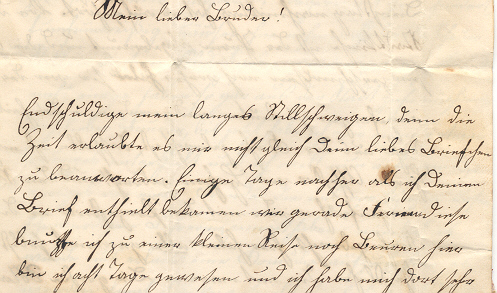 Mein lieber Bruder!
Endschuldige mein langes Stillschweigen, denn die
Zeit erlaubte es mir nicht gleich Dein libes Briefchen
zu beanworten. Einige Tage nachher als ich Deinen
Brief enthielt bekamen wir gerade
ich zu einer kleinen Reise nach hier
bin ich acht Tage gewesen und ich habe mich dort sehr